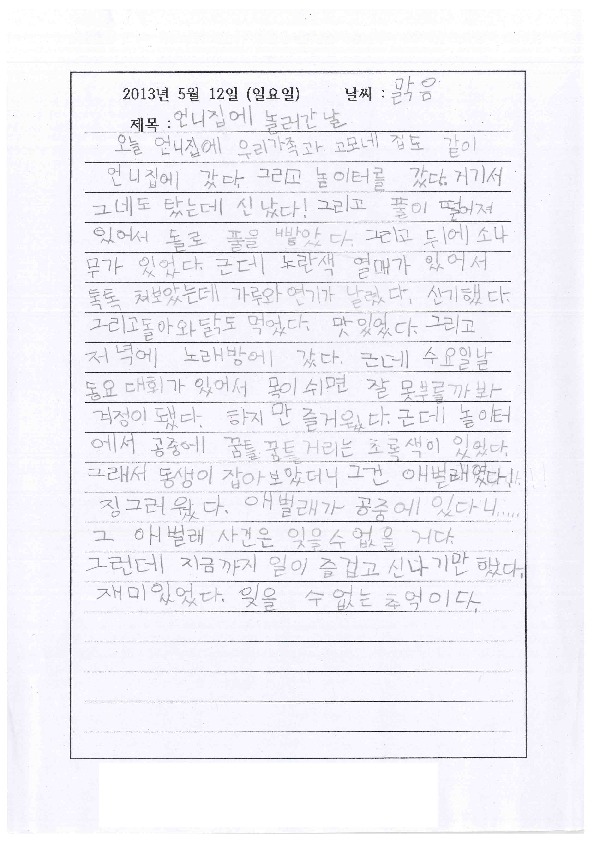 2013년 5월 12일 (일요일) 날씨 : 맑음
제목 : 언니집에 놀러간날
오늘 언니집에 우리가족과 고모네 집도 같이
언니집에 갔다. 그리고 놀이터를 갔다. 거기서
그네도 탔는데 신났다! 그리고 풀이 떨어져
있어서 돌로 풀을 빻았다. 그리고 뒤에 소나
무가 있었다. 근데 노란색 열매가 있어서
톡톡 쳐보았는데 가루와 연기가 날렸다, 신기했다.
그리고돌아와닭도 먹었다. 맛있었다. 그리고
저녁에 노래방에 갔다. 근데 수요일날
동요 대회가 있어서 목이 쉬면 잘 못부를까봐
걱정이 됐다. 하지만 즐거웠다. 근데 놀이터
에서 공중에 꿈틀꿈틀거리는 초록색이 있었다.
그래서 동생이 잡아보았더니 그건 애벌래였다!!
징그러웠다. 애벌래가 공중에 있다니.....
그 애벌래 사건은 잊을수없을 거다.
그런데 지금까지 일이 즐겁고 신나기만 했다.
재미있었다. 잊을 수 없는 추억이다.